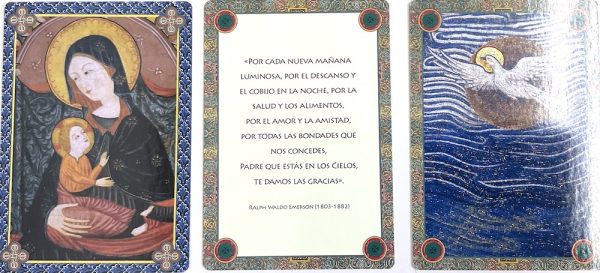 «Por cada nueva mañana
luminosa, por el descanso y
el cobijo en la noche, por la
salud y los alimentos,
por el amor y la amistad,
por todas las bondades que
nos concedes,
Padre que estás en los Cielos,
te damos las gracias».
Ralph Waldo Emerson (1803-1882)